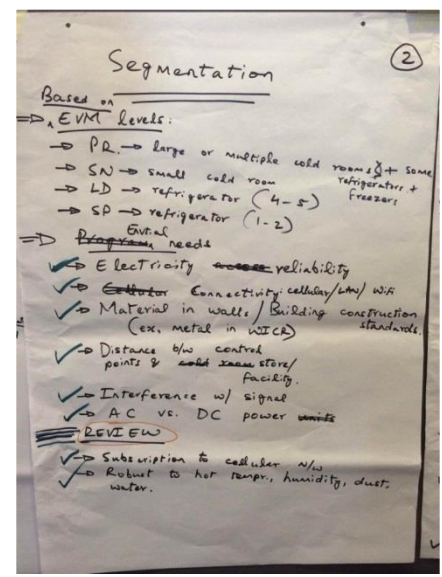 2
Segmentation
Based on
⇒ EVM levels:
→ PR. → large or multiple cold rooms + some
refrigerators +
freezers
→ SN → small cold room
→ LD → refrigerator (4-5)
→ SP → refrigerator (1-2)
⇒ needs
→ Electricity reliability
→ Connectivity: cellular/LAN/WiFi
→ Material in walls/Building construction
standards.
(ex. metal in WICR)
→ Distance b/w control
points & store/
facility.
→ Interference w/ signal
→ AC vs. DC power
REVIEW
→ Subscription to cellular N/W
→ Robust to hot tempr., humidity, dust,
water.